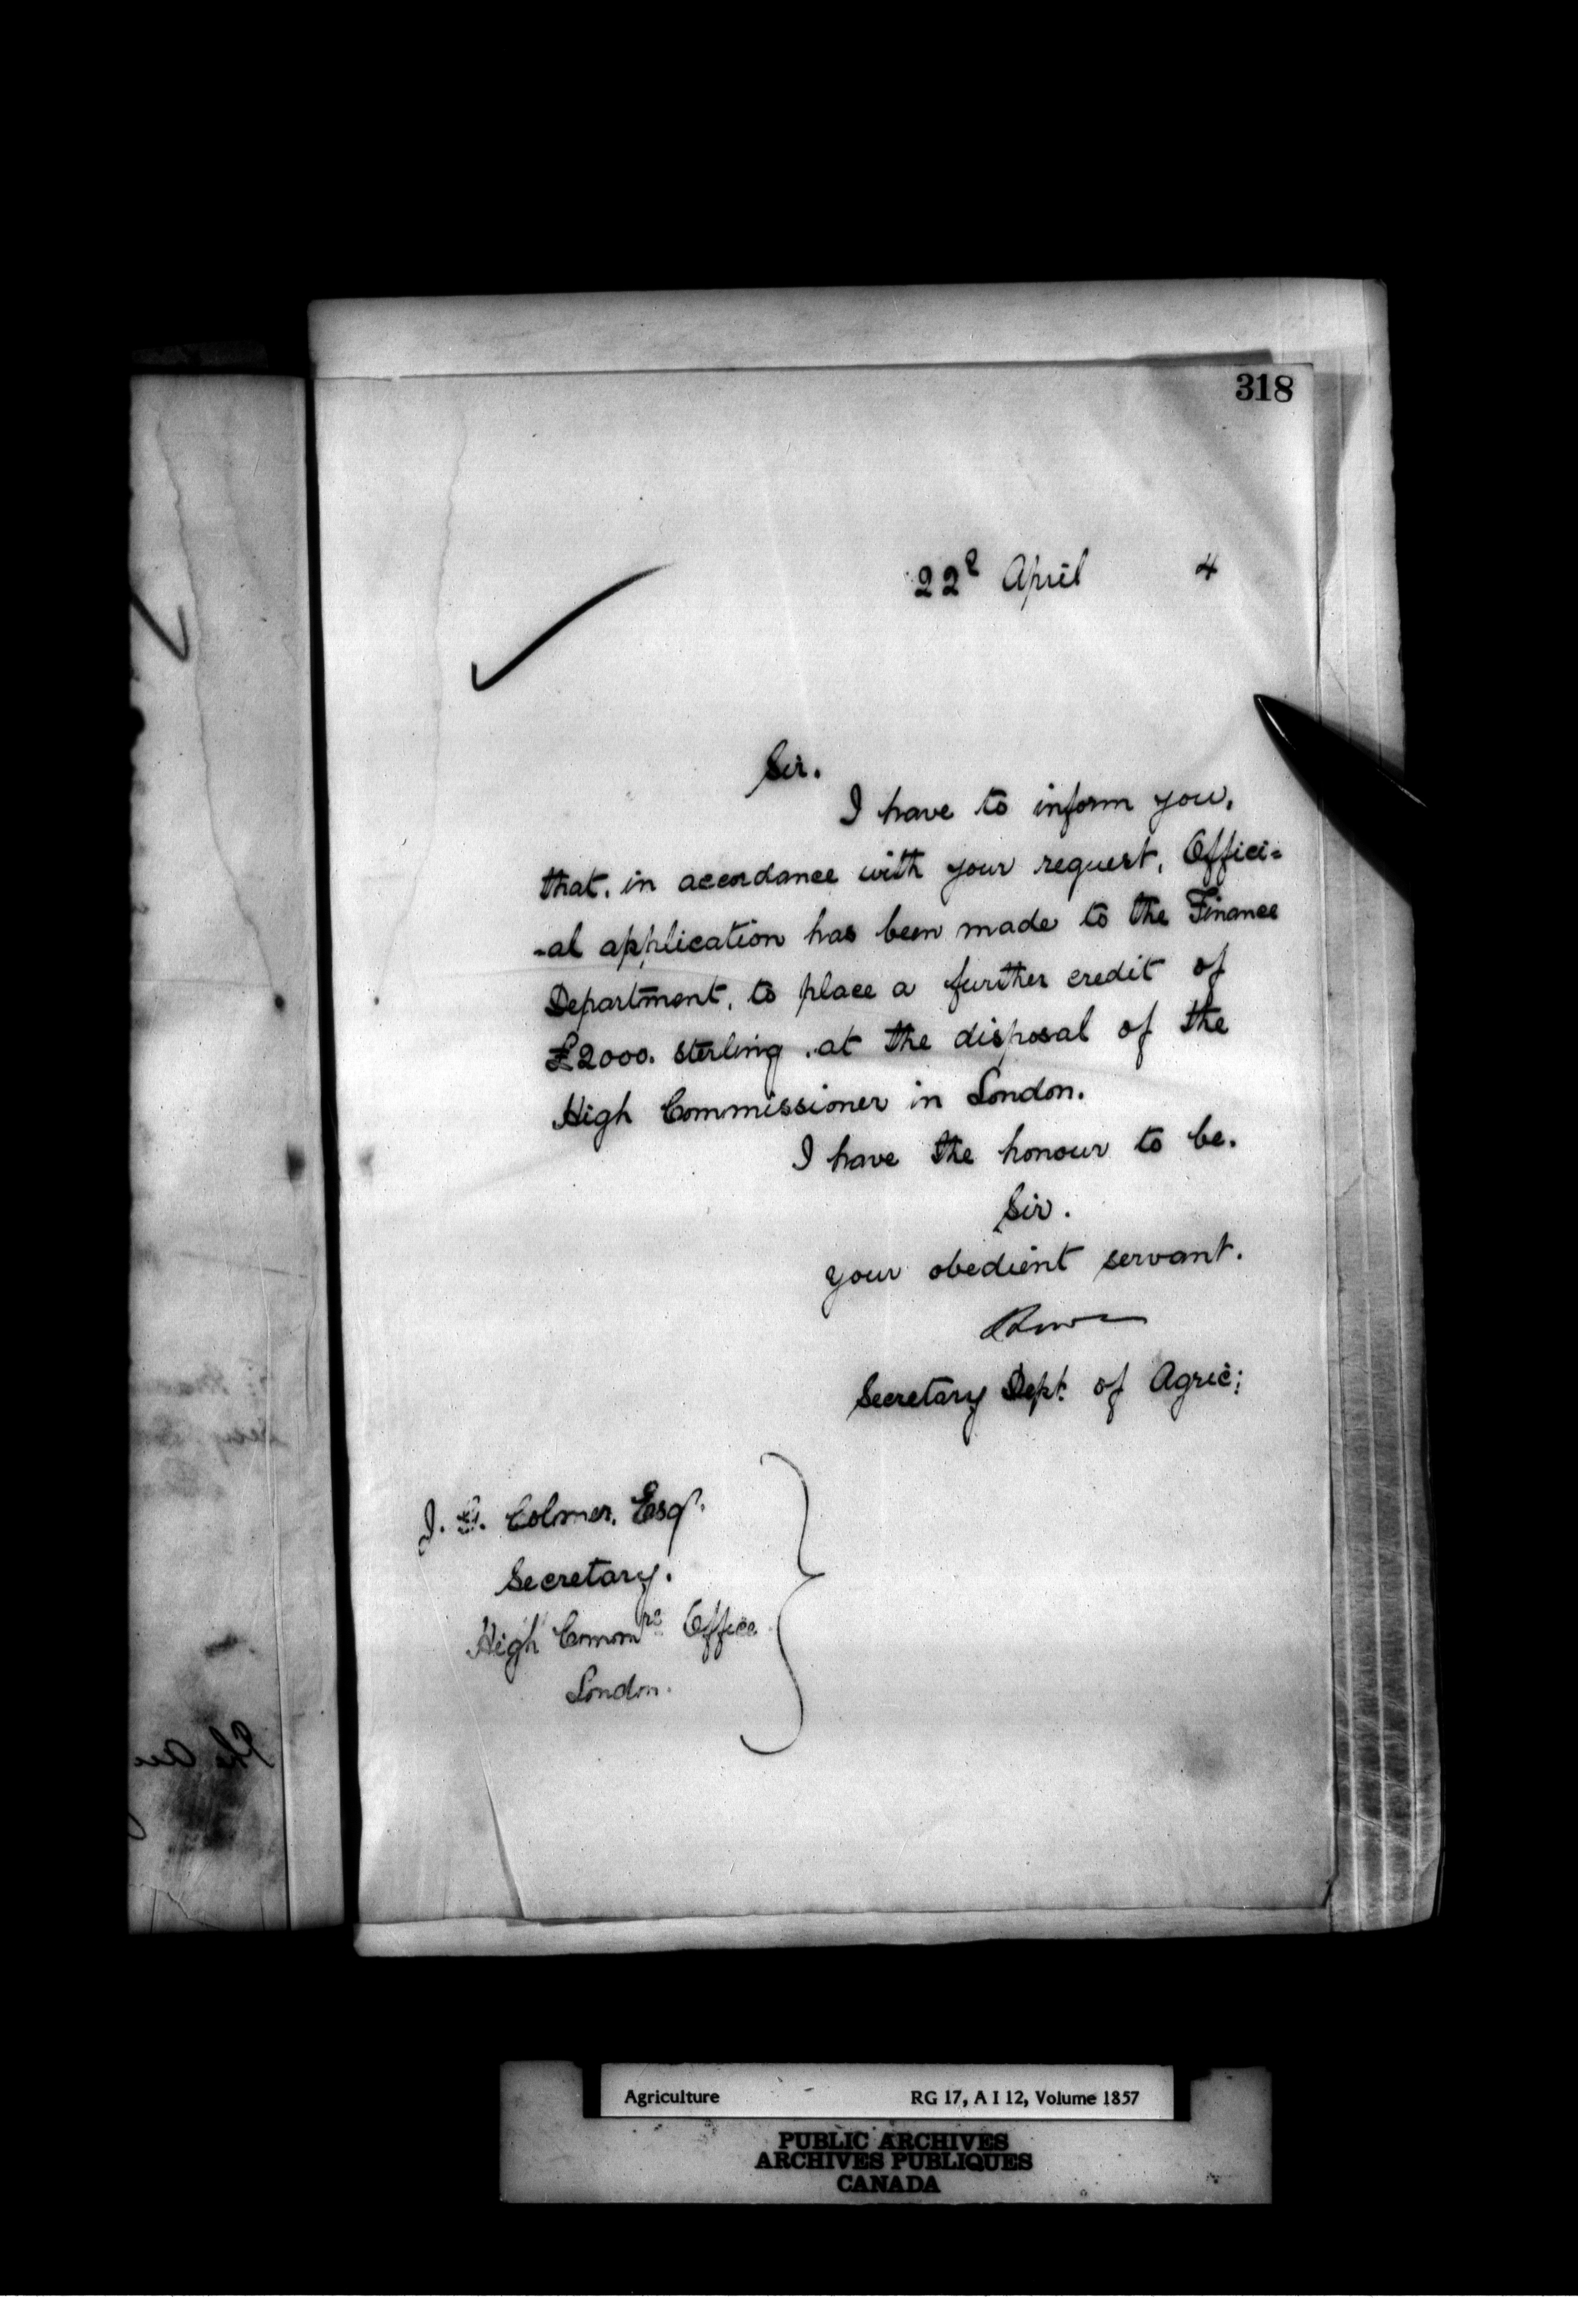 318
22d April 4
Sir.
I have to inform you,
that, in accordance with your request, Offici=
-al application has been made to the Finance
Department, to place a further credit of
£2000. sterling, at the disposal of the
High Commissioner in London.
I have the honour to be.
Sir.
your obedient servant.
Secretary Dept. of Agric:
J. G. Colmer, Esqr.
Secretary.
High Commrs Office
London.
Agriculture RG 17, A I 12, Volume 1857
PUBLIC ARCHIVES
ARCHIVES PUBLIQUES
CANADA